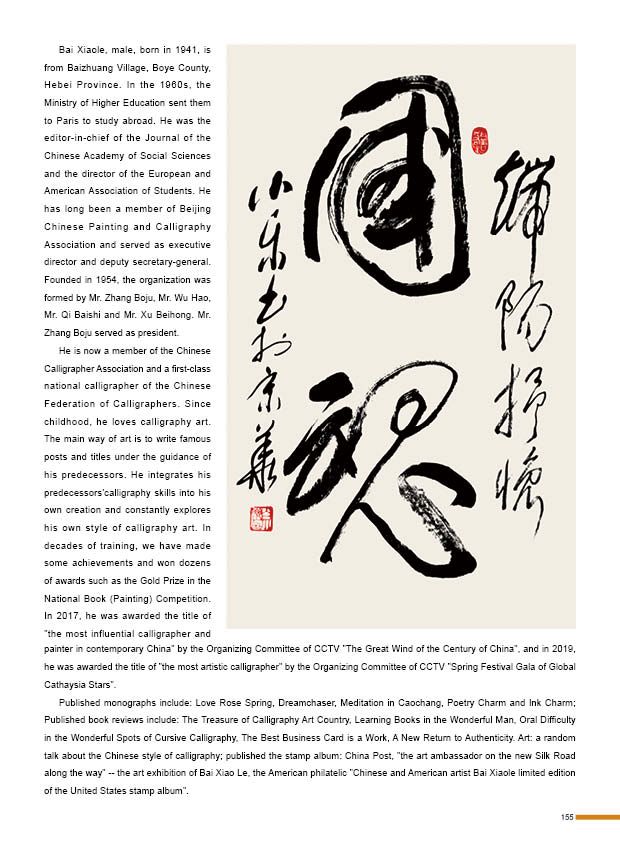 Bai Xiaole, male, born in 1941, is
from Baizhuang Village, Boye County,
Hebei Province. In the 1960s, the
Ministry of Higher Education sent them
to Paris to study abroad. He was the
editor-in-chief of the Journal of the
Chinese Academy of Social Sciences
and the director of the European and
American Association of Students. He
has long been a member of Beijing
Chinese Painting and Calligraphy
Association and served as executive
director and deputy secretary-general.
Founded in 1954, the organization was
formed by Mr. Zhang Boju, Mr. Wu Hao,
Mr. Qi Baishi and Mr. Xu Beihong. Mr.
Zhang Boju served as president.
He is now a member of the Chinese
Calligrapher Association and a first-class
national calligrapher of the Chinese
Federation of Calligraphers. Since
childhood, he loves calligraphy art.
The main way of art is to write famous
posts and titles under the guidance of
his predecessors. He integrates his
predecessors'calligraphy skills into his
own creation and constantly explores
his own style of calligraphy art. In
decades of training, we have made
some achievements and won dozens
of awards such as the Gold Prize in the
National Book (Painting) Competition.
In 2017, he was awarded the title of
"the most influential calligrapher and
painter in contemporary China" by the Organizing Committee of CCTV "The Great Wind of the Century of China", and in 2019,
he was awarded the title of "the most artistic calligrapher" by the Organizing Committee of CCTV "Spring Festival Gala of Global
Cathaysia Stars".
Published monographs include: Love Rose Spring, Dreamchaser, Meditation in Caochang, Poetry Charm and Ink Charm;
Published book reviews include: The Treasure of Calligraphy Art Country, Learning Books in the Wonderful Man, Oral Difficulty
in the Wonderful Spots of Cursive Calligraphy, The Best Business Card is a Work, A New Return to Authenticity. Art: a random
talk about the Chinese style of calligraphy; published the stamp album: China Post, "the art ambassador on the new Silk Road
along the way" -- the art exhibition of Bai Xiao Le, the American philatelic "Chinese and American artist Bai Xiaole limited edition
of the United States stamp album".
抒懷
國魂
小乐书於京華
155